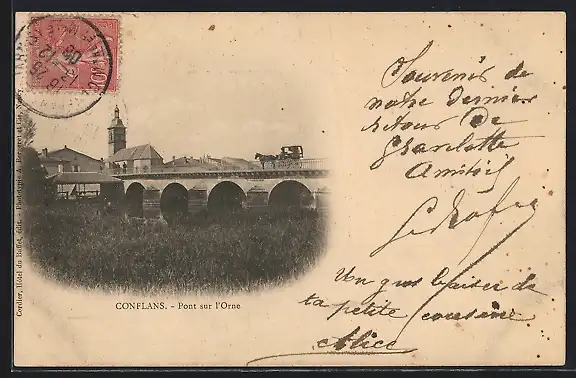 Souvenir de
notre dernier
retour de
Gravelotte
Amitiés
Un gros baiser de
ta petite cousine
Alice
CONFLANS. - Pont sur l'Orne
Cordier, Hôtel du Buffet, édit. - Phototypie A. Bergeret et Cie, Nancy